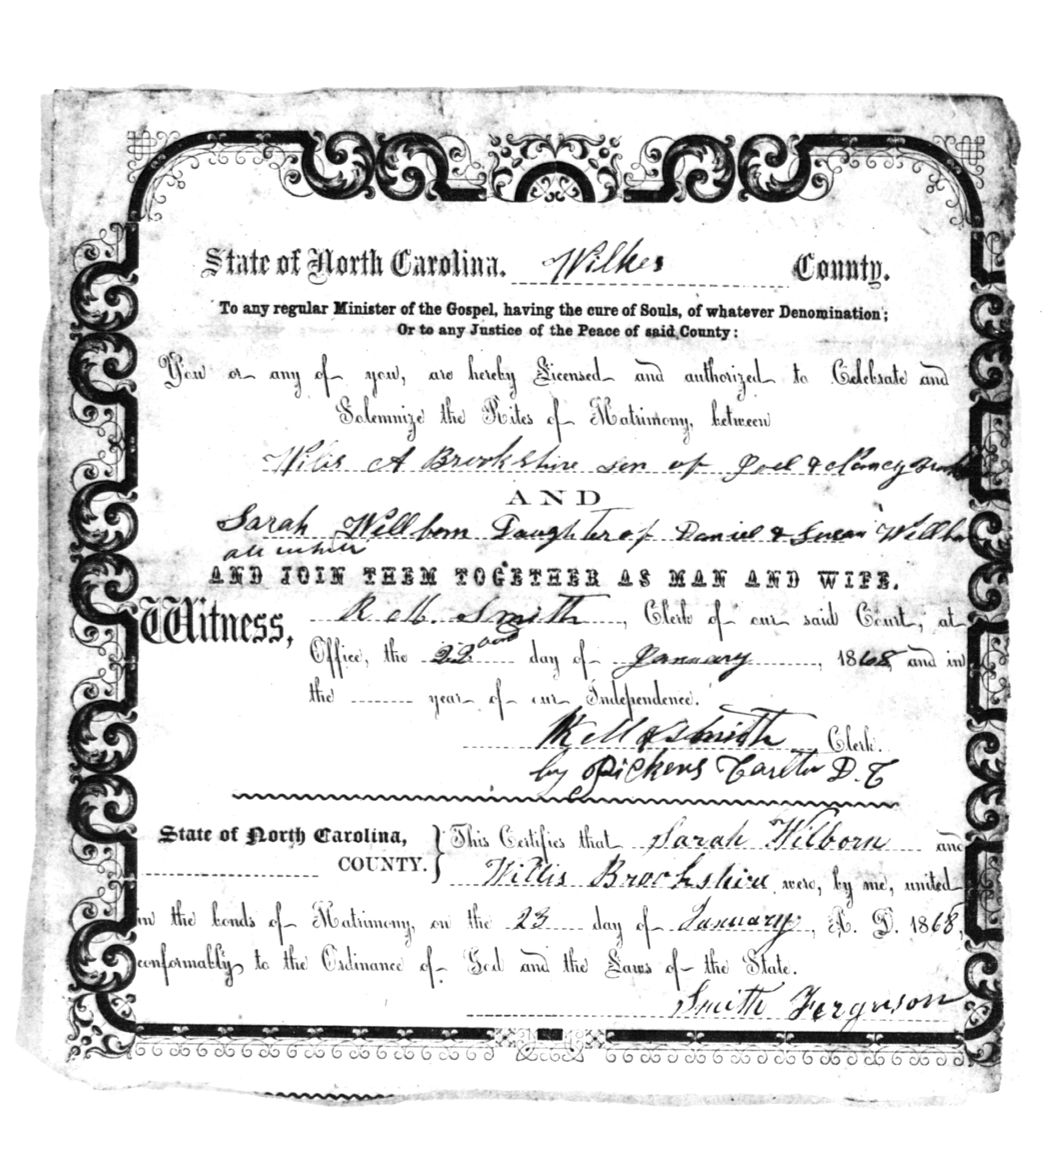 State of North Carolina. Wilkes County.
To any regular Minister of the Gospel, having the cure of Souls, of whatever Denomination;
Or to any Justice of the Peace of said County:
You or any of you, are hereby Licensed and authorized to Celebrate and
Solemnize the Rites of Matrimony, between
Wilis A Brookshire son of Joel & Nancy
AND
Sarah Wellborn Daughter of Daniel & Susan
all white
AND JOIN THEM TOGETHER AS MAN AND WIFE.
Witness, R M Smith, Clerk of our said Court, at
Office, the 22nd day of January, 1868, and in
the year of our Independence.
R M Smith Clerk.
by Pickens Carlton D. C
State of North Carolina, } This Certifies that Sarah Wilborn and
COUNTY. Willis Brookshire were, by me, united
in the bonds of Matrimony, on the 23 day of January, A. D. 1868,
conformably to the Ordinance of God and the Laws of the State.
Smith Ferguson